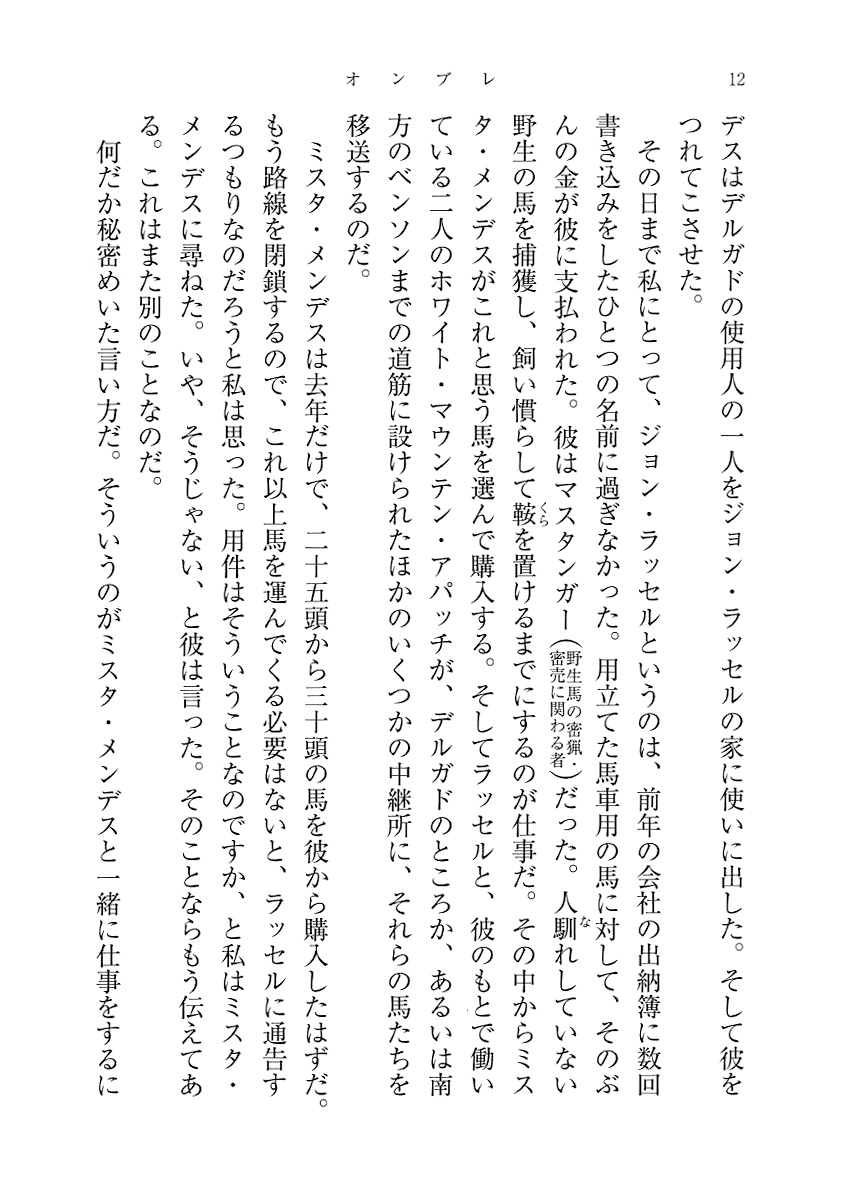 オンブレ
12
デスはデルガドの使用人の一人をジョン・ラッセルの家に使いに出した。そして彼を
つれてこさせた。
その日まで私にとって、ジョン・ラッセルというのは、前年の会社の出納簿に数回
書き込みをしたひとつの名前に過ぎなかった。用立てた馬車用の馬に対して、そのぶ
んの金が彼に支払われた。彼はマスタンガー（野生馬の密猟・密売に関わる者）だった。人馴れしていない
野生の馬を捕獲し、飼い慣らして鞍を置けるまでにするのが仕事だ。その中からミス
タ・メンデスがこれと思う馬を選んで購入する。そしてラッセルと、彼のもとで働い
ている二人のホワイト・マウンテン・アパッチが、デルガドのところか、あるいは南
方のベンソンまでの道筋に設けられたほかのいくつかの中継所に、それらの馬たちを
移送するのだ。
ミスタ・メンデスは去年だけで、二十五頭から三十頭の馬を彼から購入したはずだ。
もう路線を閉鎖するので、これ以上馬を運んでくる必要はないと、ラッセルに通告す
るつもりなのだろうと私は思った。用件はそういうことなのですか、と私はミスタ・
メンデスに尋ねた。いや、そうじゃない、と彼は言った。そのことならもう伝えてあ
る。これはまた別のことなのだ。
何だか秘密めいた言い方だ。そういうのがミスタ・メンデスと一緒に仕事をするに